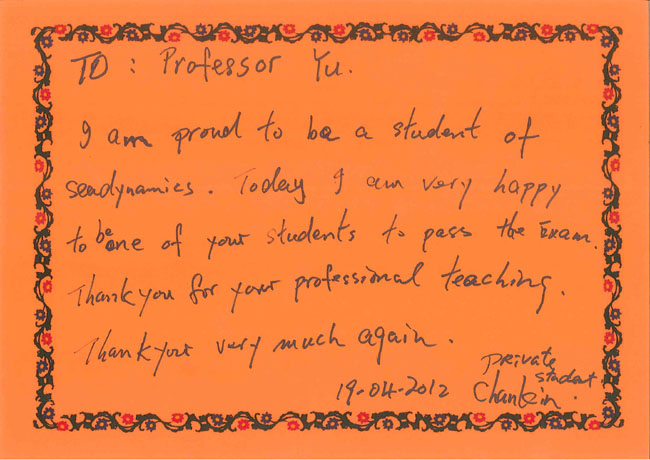 TO : Professor Yu.
I am proud to be a student of
seadynamics. Today I am very happy
to be one of your students to pass the Exam.
Thankyou for your professional teaching.
Thankyou very much again.
private
student
19-04-2012